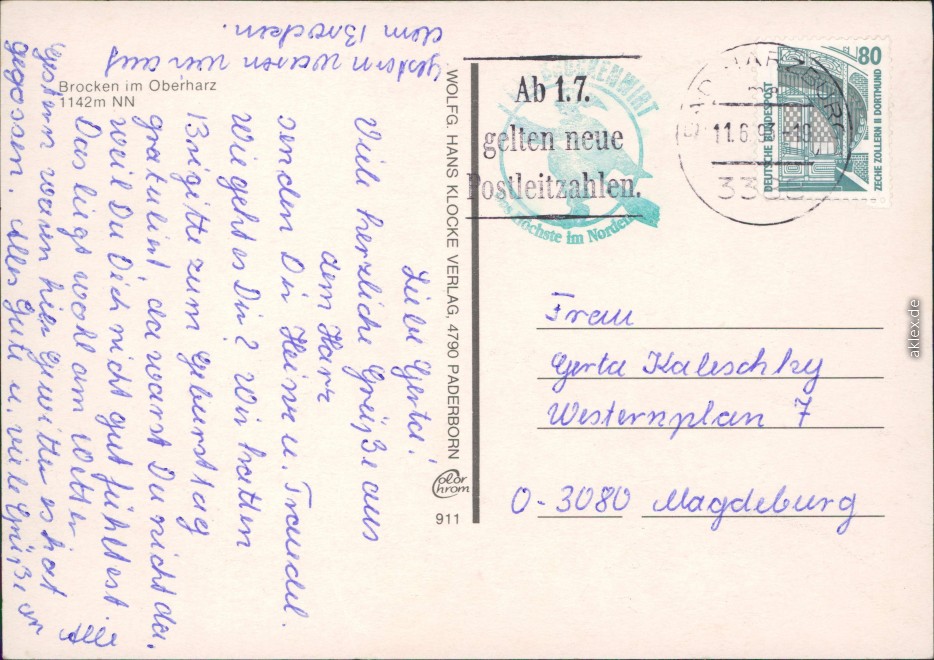 Brocken im Oberharz
1142m NN
Liebe Gerta!
Viele herzliche Grüße aus
dem Harz
senden Dir Heine u. Traudel.
Wie geht es Dir? Wir hatten
Brigitte zum Geburstag
gratuliert, da warst Du nicht da,
weil Du Dich nicht gut fühltest
Das liegt wohl am Wetter
gestern waren hier Gewitter es hat
gegossen. Alles Gute u. viele Grüße an
Alle
Gestern waren wir auf
dem Brocken.
WOLFG. HANS KLOCKE VERLAG, 4790 PADERBORN
Color
Chrom
911
BROCKENWIRT
Höchste im Norden
Ab 1.7.
gelten neue
Postleitzahlen.
BAD HARZBURG
11.6.93-19
DEUTSCHE BUNDESPOST
80
ZECHE ZOLLERN II DORTMUND
Frau
Gerta Kaleschky
Westernplan 7
O-3080 Magdeburg
aklex.de